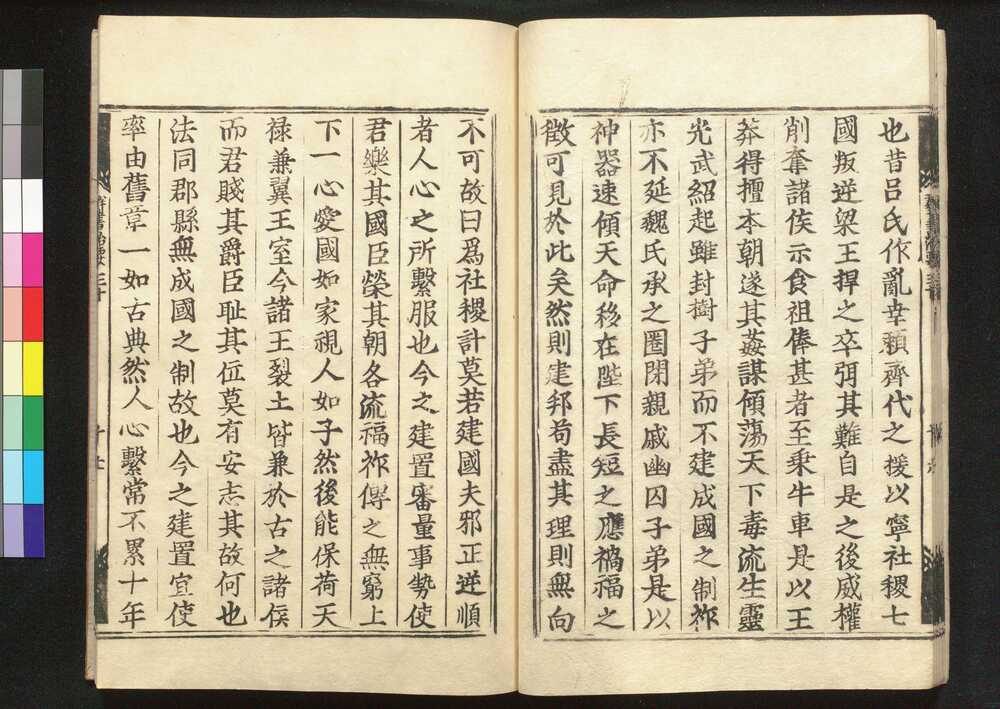 也昔呂氏作亂幸頼齊代之援以寧社稷七
國叛逆梁王捍之卒弭其難自是之後威權
削奪諸侯示食祖俸甚者至乗牛車是以王
莽得擅本朝遂其姦謀傾蕩天下毒流生靈
光武紹起雖封樹子弟而不建成國之制祚
亦不延魏氏承之圏閉親戚幽囚子弟是以
神器速傾天命移在陛下長短之應禍福之
徴可見於此矣然則建邦苟盡其理則無向
不可故曰爲社稷計莫若建國夫邪正逆順
者人心之所繫服也今之建置審量事勢使
君樂其國臣榮其朝各流福祚傳之無窮上
下一心愛國如家視人如子然後能保荷天
禄兼翼王室今諸王裂土皆兼於古之諸侯
而君賤其爵臣耻其位莫有安志其故何也
法同郡縣無成國之制故也今之建置宜使
率由舊章一如古典然人心繫常不累十年
群書治要三十
十七